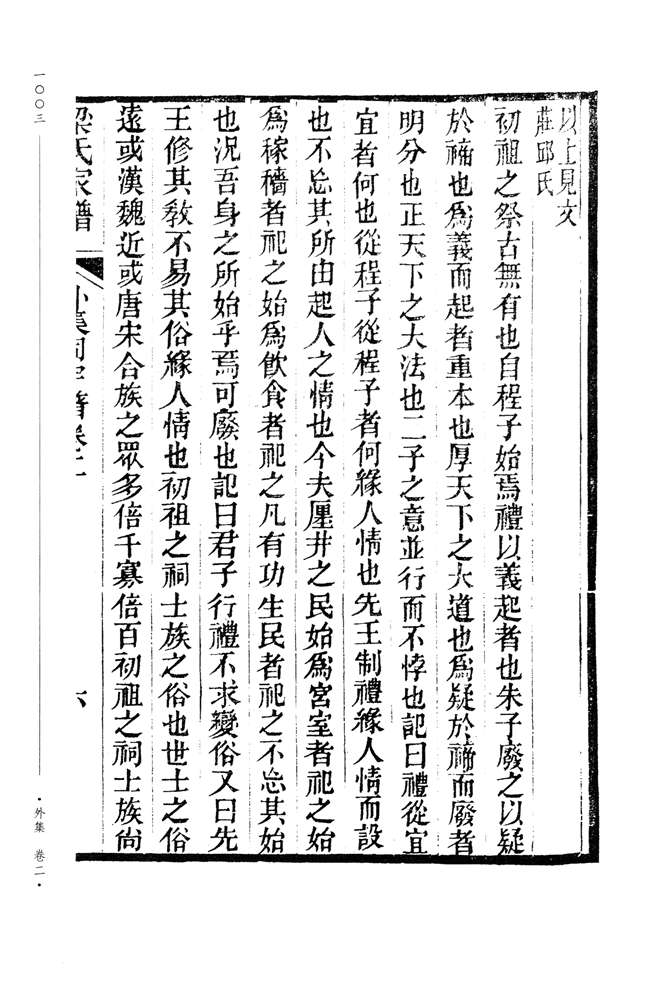 以上見文
莊邱氏
初祖之祭古無有也自程子始焉禮以義起者也朱子廢之以疑
於禘也爲義而起者重本也厚天下之大道也爲疑於禘而廢者
明分也正天下之大法也二子之意並行而不悖也記曰禮從宜
宜者何也從程子從程子者何緣人情也先王制禮緣人情而設
也不忘其所由起人之情也今夫廛井之民始爲宮室者祀之始
爲稼穡者祀之始爲飲食者祀之凡有功生民者祀之不忘其始
也況吾身之所始乎焉可廢也記曰君子行禮不求變俗又曰先
王修其敎不易其俗緣人情也初祖之祠士族之俗也世士之俗
遠或漢魏近或唐宋合族之眾多倍千寡倍百初祖之祠士族尚
梁氏家譜
外集
卷二
六
一〇〇三
·外集 卷二·